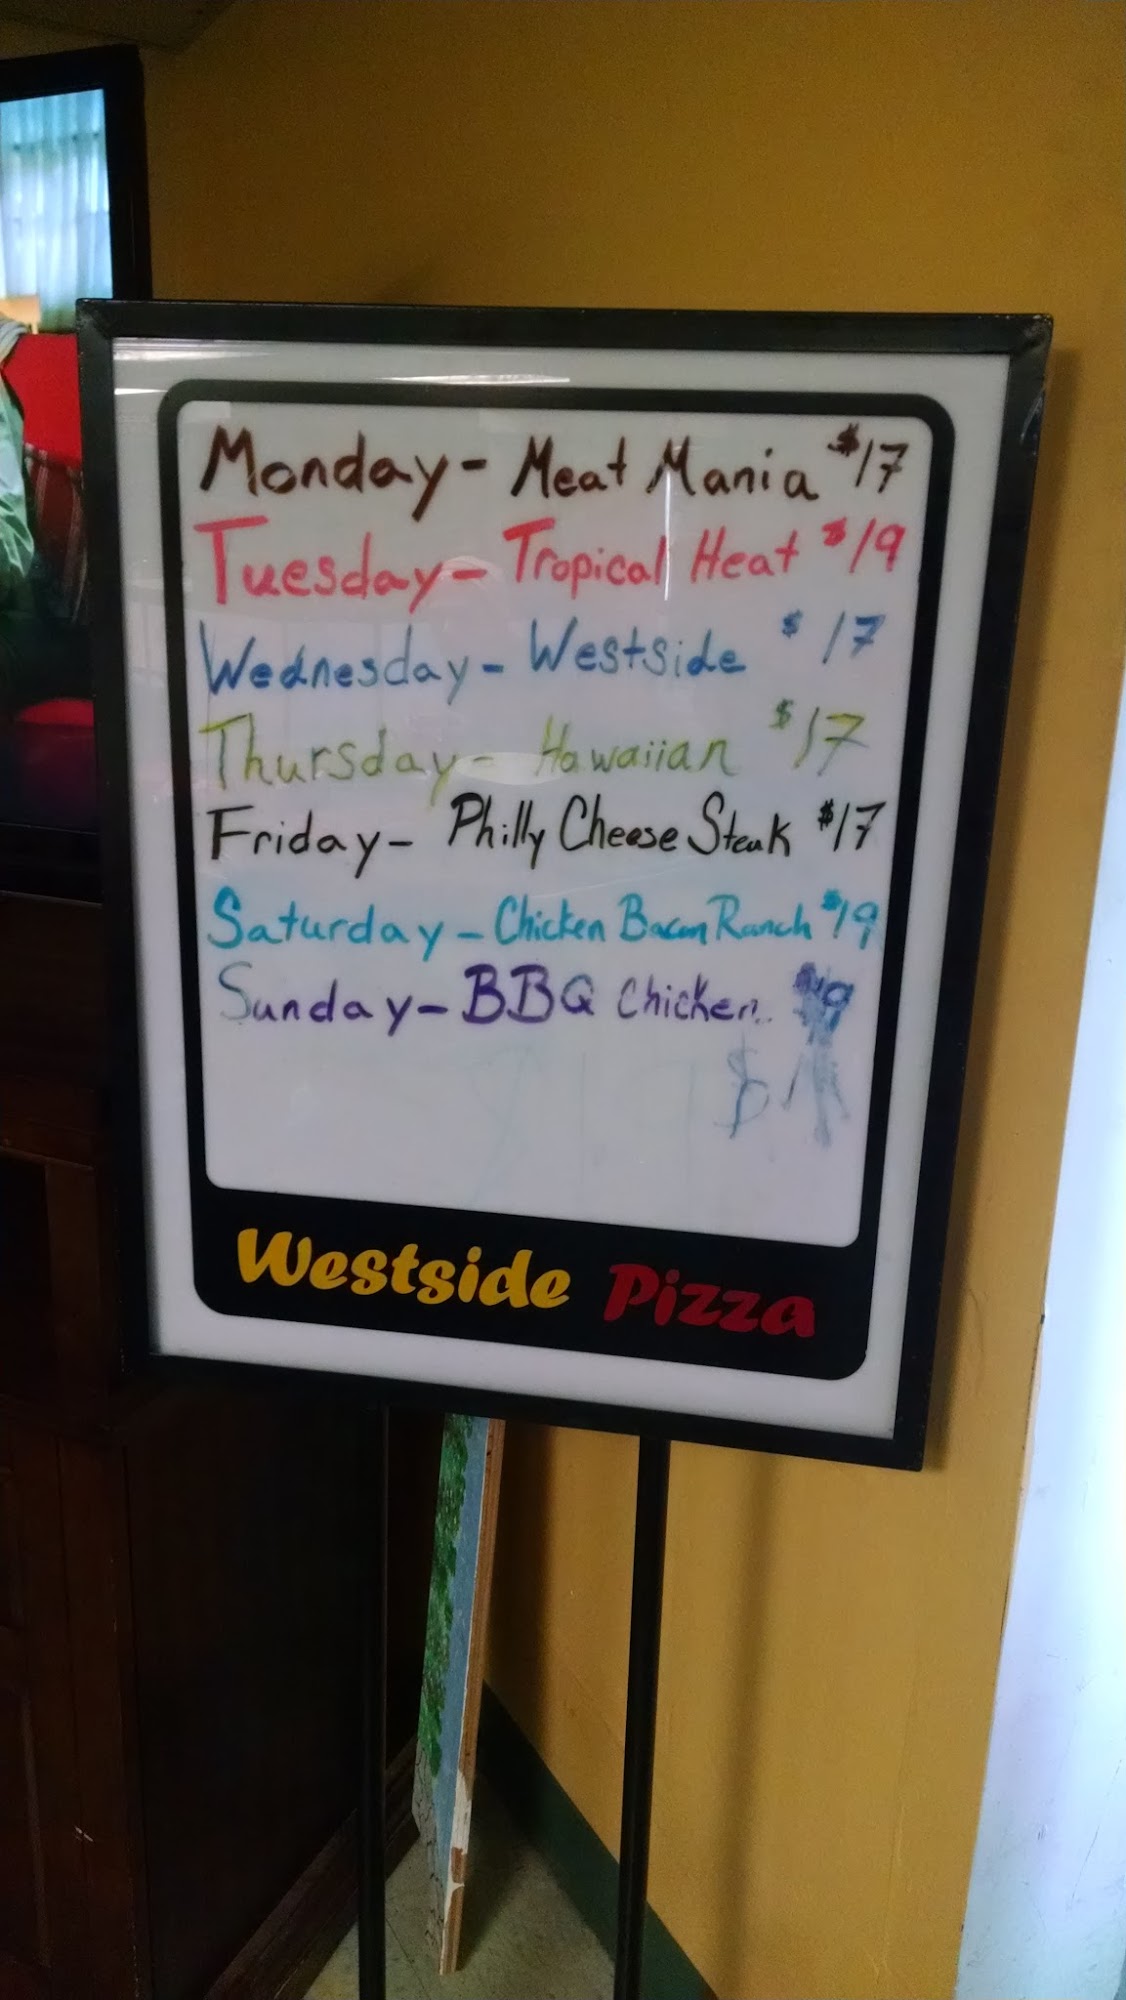 Monday - Meat Mania $17
Tuesday - Tropical Heat $19
Wednesday - Westside $17
Thursday - Hawaiian $17
Friday - Philly Cheese Steak $17
Saturday - Chicken Bacon Ranch $19
Sunday - BBQ Chicken
Westside Pizza